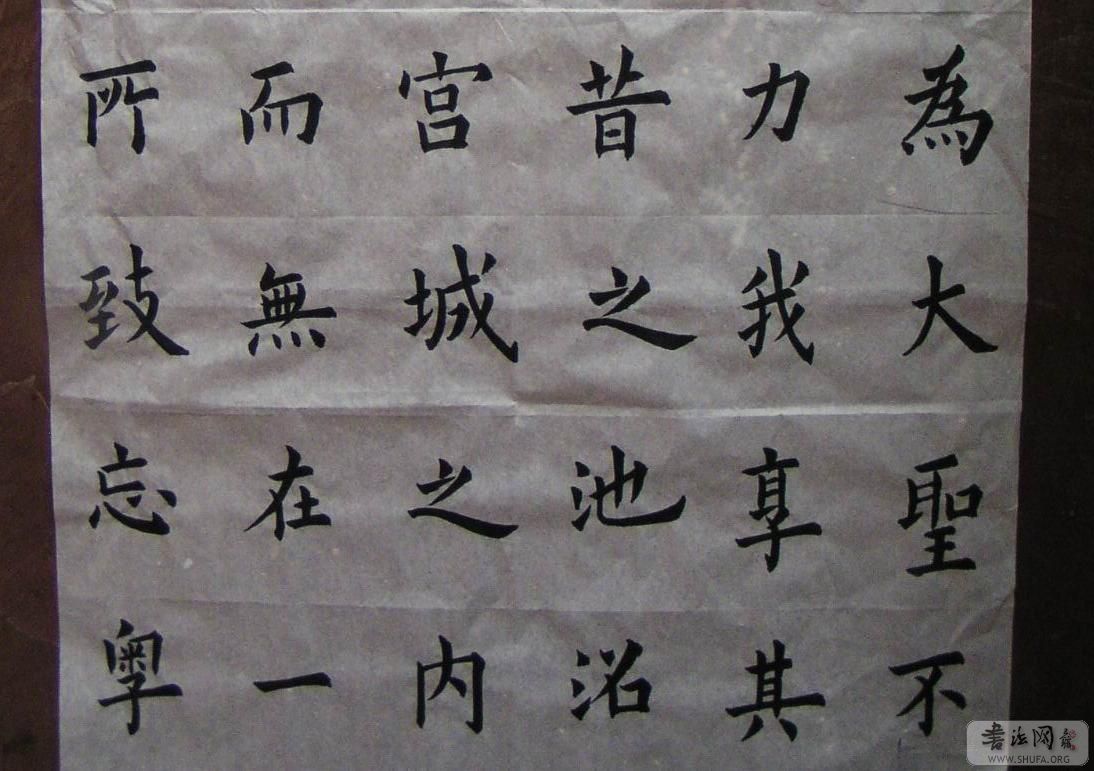 為大聖不
力我享其
昔之池沼
宫城之内
而無在一
所致忘粤
書法网
WWW.SHUFA.ORG